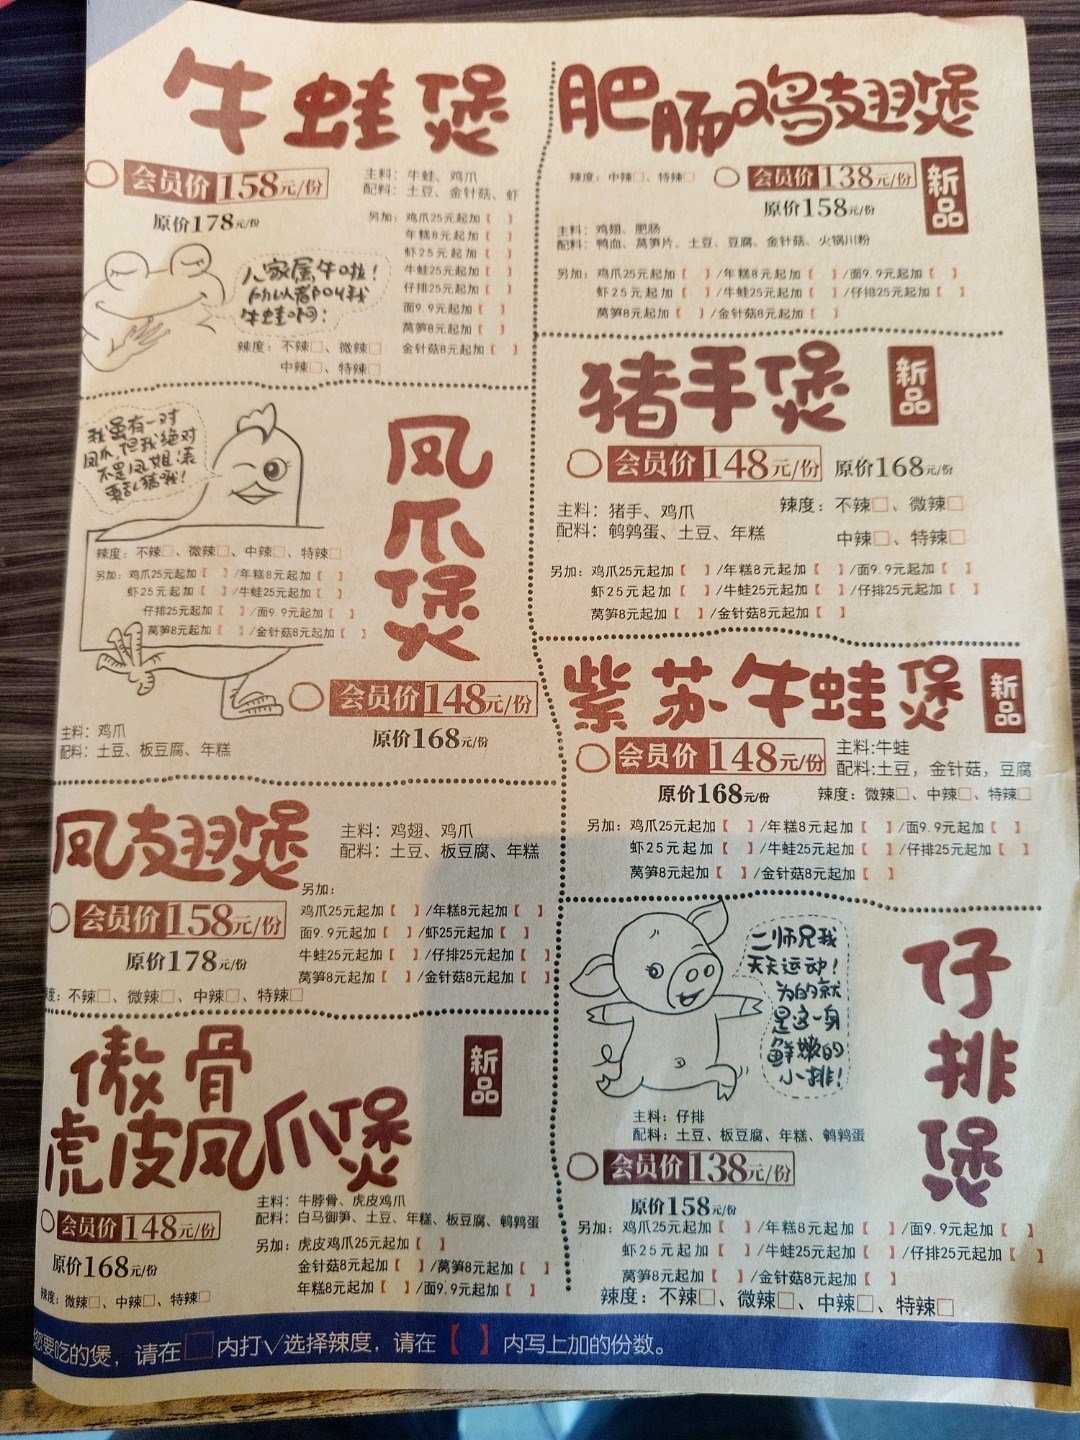 牛蛙煲
会员价158元/份
原价178元/份
主料：牛蛙、鸡爪
配料：土豆、金针菇、虾
另加：鸡爪25元起加【 】
年糕8元起加【 】
虾25元起加【 】
牛蛙25元起加【 】
仔排25元起加【 】
面9.9元起加【 】
莴笋8元起加【 】
金针菇8元起加【 】
人家属牛啦！
所以都叫我
牛蛙啊！
辣度：不辣□、微辣□
中辣□、特辣□
肥肠鸡翅煲
新品
辣度：中辣□、特辣□
会员价138元/份
原价158元/份
主料：鸡翅、肥肠
配料：鸭血、莴笋片、土豆、豆腐、金针菇、火锅川粉
另加：鸡爪25元起加【 】/年糕8元起加【 】/面9.9元起加【 】
虾25元起加【 】/牛蛙25元起加【 】/仔排25元起加【 】
莴笋8元起加【 】/金针菇8元起加【 】
凤爪煲
我虽有一对
凤爪,但我绝对
不是凤姐,表
要乱猜哦!
辣度：不辣□、微辣□、中辣□、特辣□
另加：鸡爪25元起加【 】/年糕8元起加【 】
虾25元起加【 】/牛蛙25元起加【 】
仔排25元起加【 】/面9.9元起加【 】
莴笋8元起加【 】/金针菇8元起加【 】
会员价148元/份
原价168元/份
主料：鸡爪
配料：土豆、板豆腐、年糕
猪手煲
新品
会员价148元/份
原价168元/份
主料：猪手、鸡爪
配料：鹌鹑蛋、土豆、年糕
辣度：不辣□、微辣□
中辣□、特辣□
另加：鸡爪25元起加【 】/年糕8元起加【 】/面9.9元起加【 】
虾25元起加【 】/牛蛙25元起加【 】/仔排25元起加【 】
莴笋8元起加【 】/金针菇8元起加【 】
紫苏牛蛙煲
新品
会员价148元/份
原价168元/份
主料:牛蛙
配料:土豆，金针菇，豆腐
辣度：微辣□、中辣□、特辣□
另加：鸡爪25元起加【 】/年糕8元起加【 】/面9.9元起加【 】
虾25元起加【 】/牛蛙25元起加【 】/仔排25元起加【 】
莴笋8元起加【 】/金针菇8元起加【 】
凤翅煲
会员价158元/份
原价178元/份
主料：鸡翅、鸡爪
配料：土豆、板豆腐、年糕
另加：
鸡爪25元起加【 】/年糕8元起加【 】
面9.9元起加【 】/虾25元起加【 】
牛蛙25元起加【 】/仔排25元起加【 】
莴笋8元起加【 】/金针菇8元起加【 】
度：不辣□、微辣□、中辣□、特辣□
仔排煲
二师兄我
天天运动!
为的就
是这一身
鲜嫩的
小排!
主料：仔排
配料：土豆、板豆腐、年糕、鹌鹑蛋
会员价138元/份
原价158元/份
另加：鸡爪25元起加【 】/年糕8元起加【 】/面9.9元起加【 】
虾25元起加【 】/牛蛙25元起加【 】/仔排25元起加【 】
莴笋8元起加【 】/金针菇8元起加【 】
辣度：不辣□、微辣□、中辣□、特辣□
傲骨
虎皮凤爪煲
新品
会员价148元/份
原价168元/份
主料：牛脖骨、虎皮鸡爪
配料：白马御笋、土豆、年糕、板豆腐、鹌鹑蛋
另加：虎皮鸡爪25元起加【 】
金针菇8元起加【 】/莴笋8元起加【 】
年糕8元起加【 】/面9.9元起加【 】
辣度：微辣□、中辣□、特辣□
您要吃的煲，请在□内打√选择辣度，请在【 】内写上加的份数。